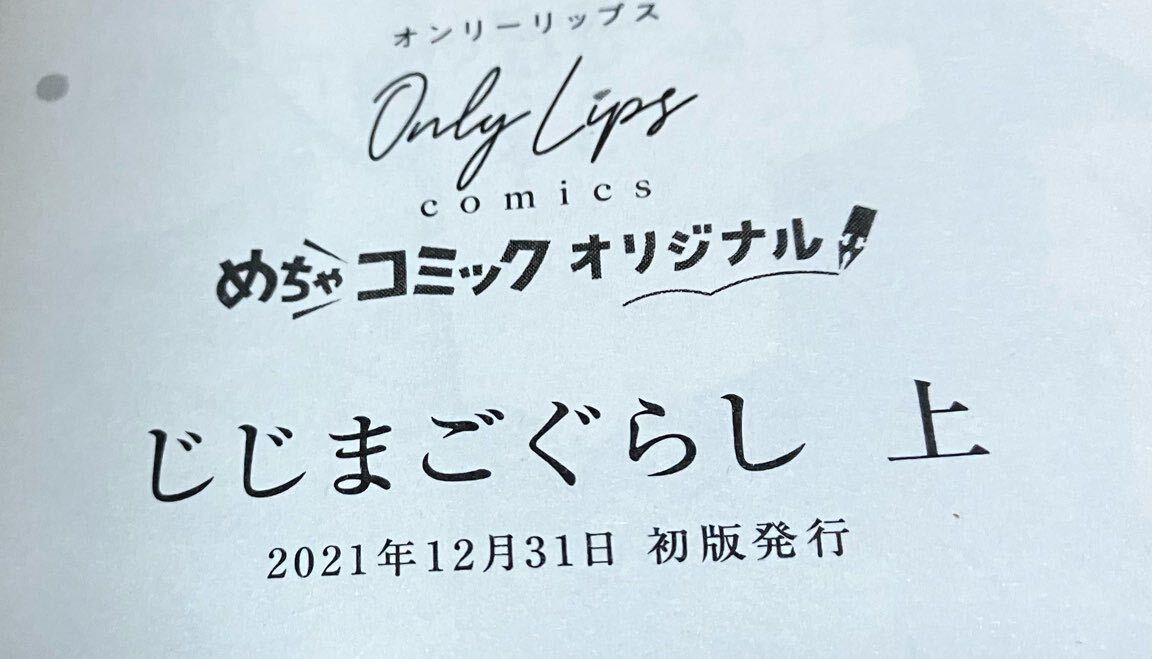 オンリーリップス
Only Lips
comics
めちゃコミックオリジナル
じじまごぐらし 上
2021年12月31日 初版発行